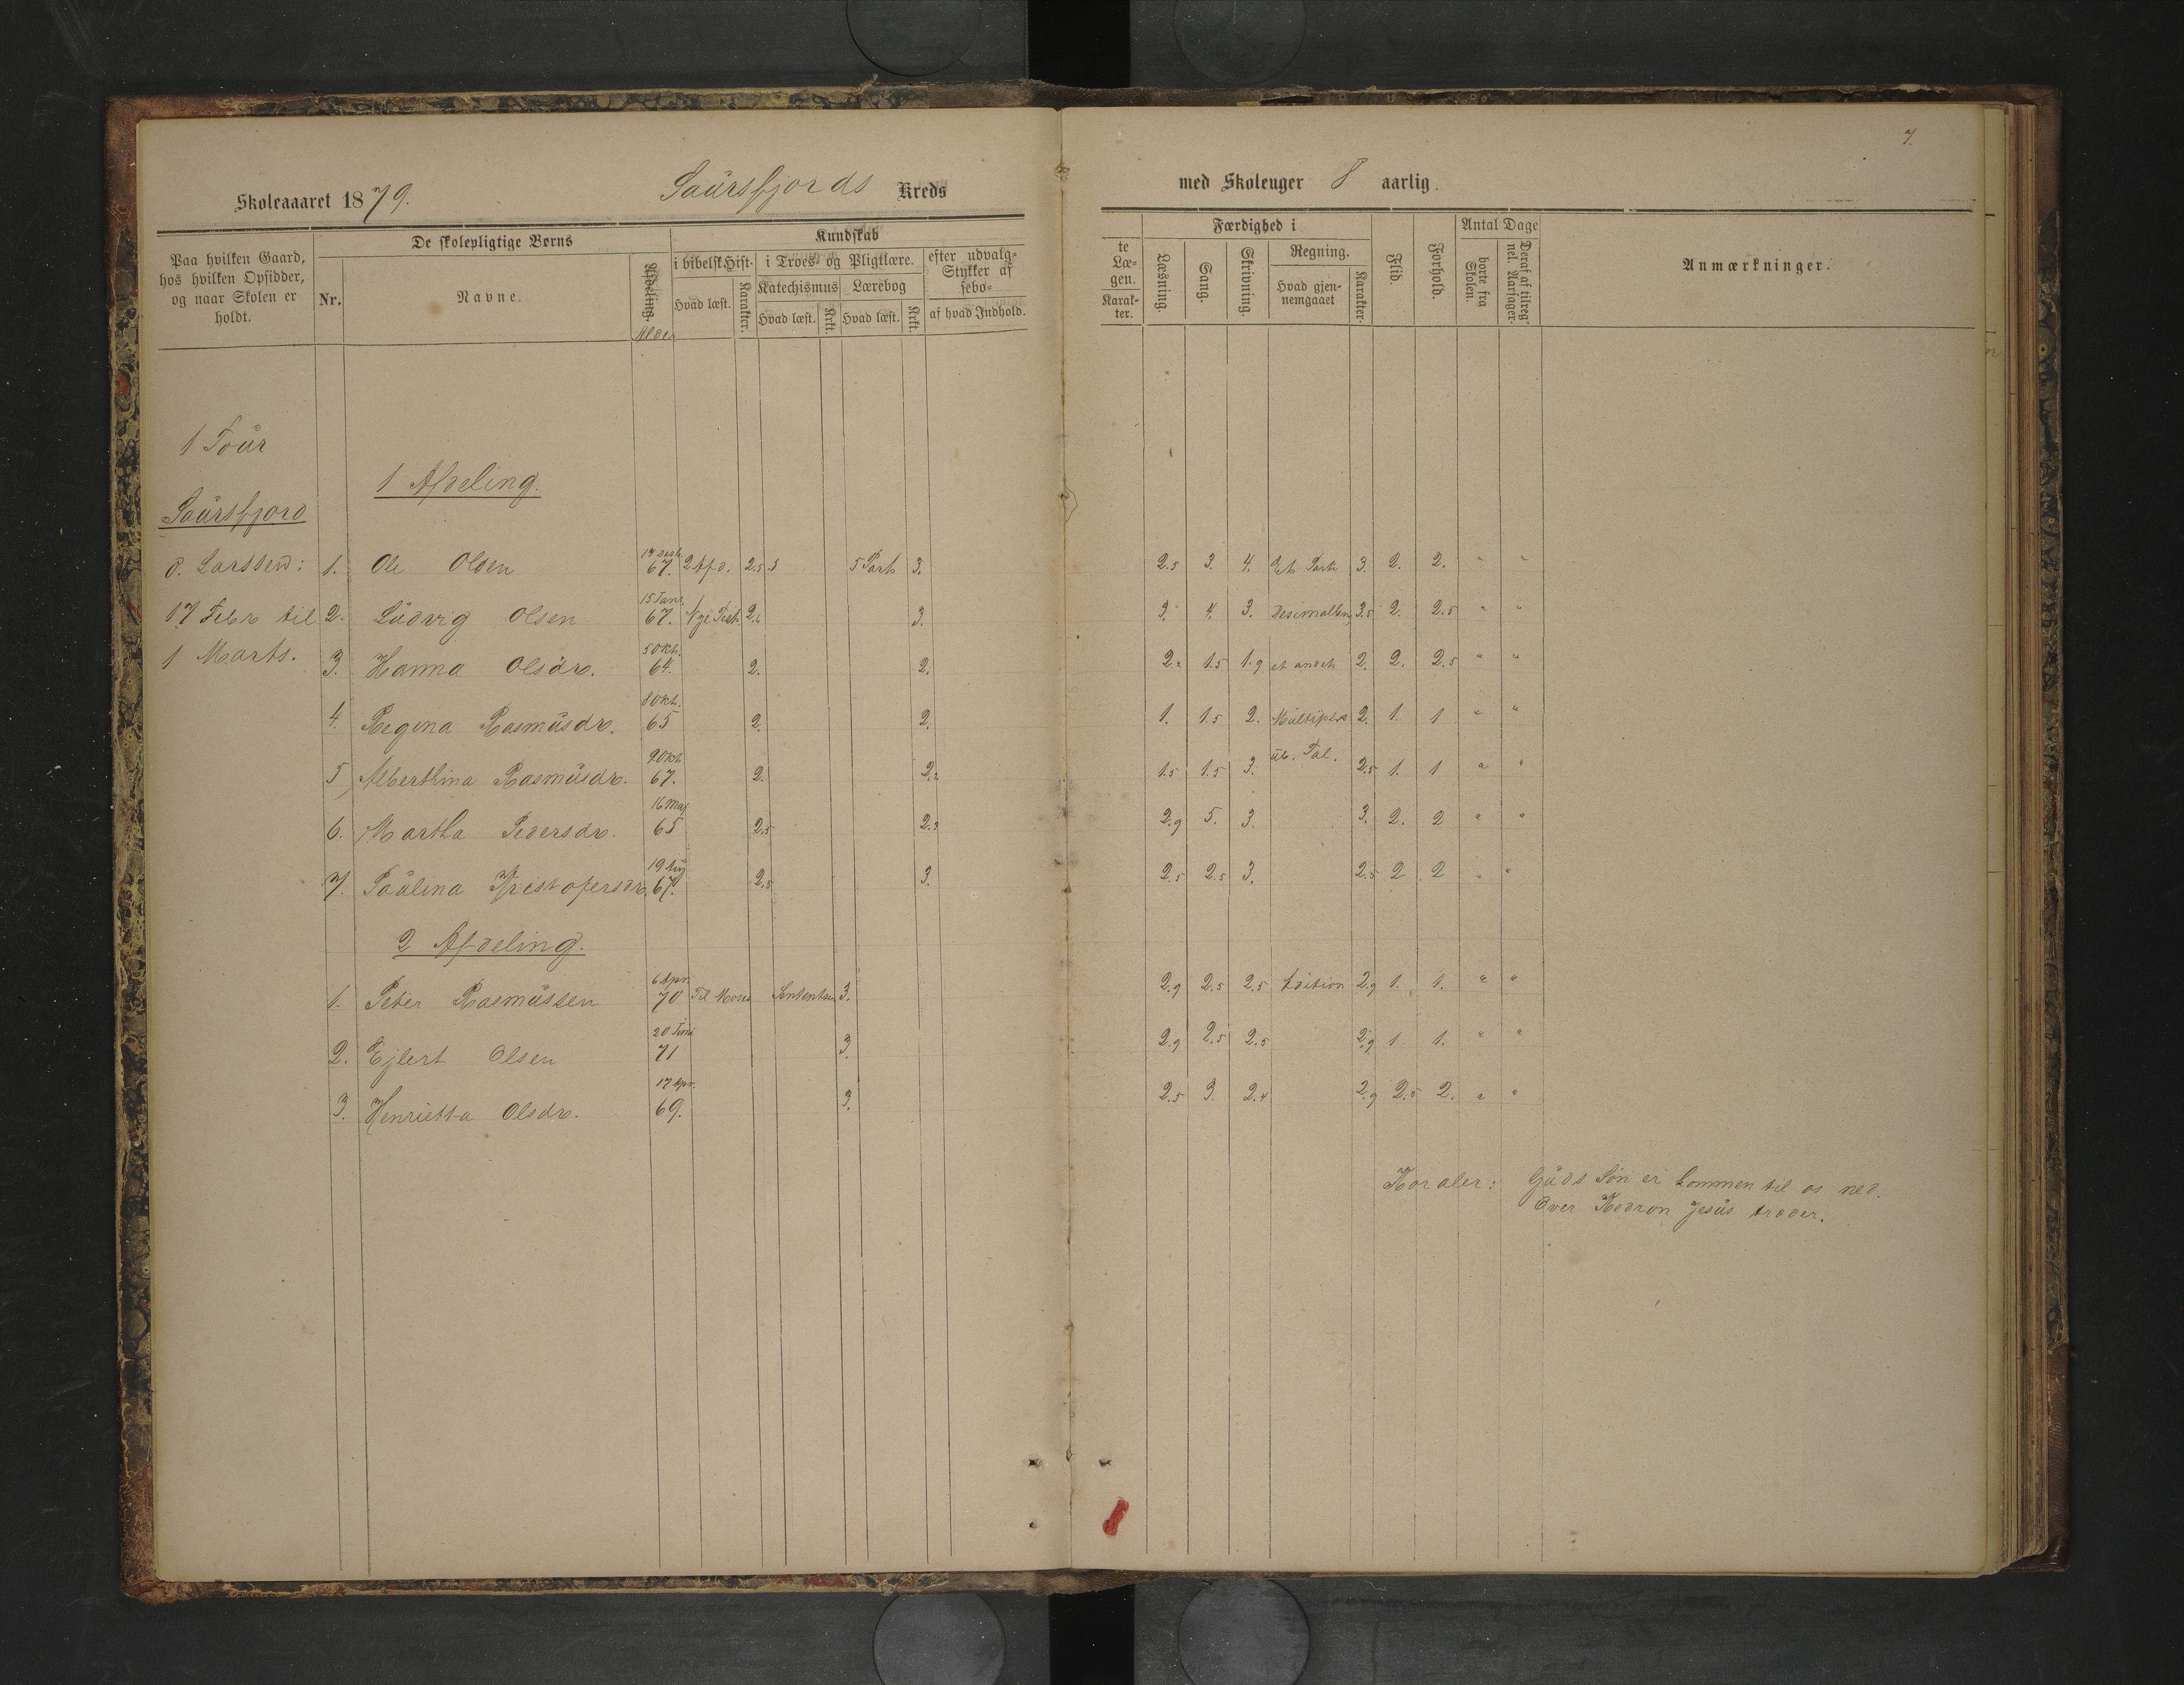 7.
Skoleaaaret 1879. Saursfjords Kreds med Skoleuger 8 aarlig.
Paa hvilken Gaard, hos hvilken Opsidder, og naar Skolen er holdt.
De skolepligtige Børns
Nr. Navne. Afdeling. Alder
Kundskab
i bibelsk Hist. Hvad læst. Karakter.
i Troes- og Pligtlære.
Katechismus Hvad læst. Krkt.
Lærebog Hvad læst. Krkt.
efter udvalg- Stykker af sebo- af hvad Indhold.
te Læ- gen. Karak- ter.
Færdighed i
Læsning. Sang. Skrivning.
Regning. Hvad gjen- nemgaaet Karakter.
Flid. Forhold.
Antal Dage
borte fra Skolen. Deraf af tilreg- nel. Aarsager.
Anmærkninger.
1 Tour
1 Afdeling.
Saursfjord
O. Larssen: 1. Ole Olsen 67. 2 Afd. 2.5 5 Part 3. 2.5 3. 4. Et Part. 3. 2. 2. " "
17 Febr til 2. Ludvig Olsen 15 Janr. 67. Nye Test. 3. 3. 4. 3. 3.5 2. 2.5 " "
1 Marts. 3. Hanna Olsdr. 5 Okt. 64. 2. 2. 2.2 1.5 1.9 et andet 2. 2. 2.5 " "
4. Regina Rasmusdr. 8 Okt. 65 2. 2. 1. 1.5 2. 2. 1. 1 " "
5 Alberthina Rasmusdr. 9 Okt 67. 2. 2.2 1.5 1.5 3. Tal. 2.5 1. 1 " "
6. Martha Pedersdr. 16 Maj 65 2.5 2.3 2.9 5. 3. 3. 2. 2 " "
7. Paulina Kristofersdr. 19 Aug 67. 2.5 3. 2.5 2.5 3. 2.5 2 2 " "
2 Afdeling.
1. Peter Rasmussen 6 Apr. 70 Til Moses 3. 2.9 2.5 2.5 Adition 2.9 1. 1. " "
2. Ejlert Olsen 20 Juni 71 3. 2.9 2.5 2.5 2.9 1 1. " "
3. Henrietta Olsdr. 17 Apr. 69. 3. 2.5 3. 2.4 2.9 2.5 2. " "
Koraler: Guds Søn er kommen til os ned.
Over Kedron Jesus træder.